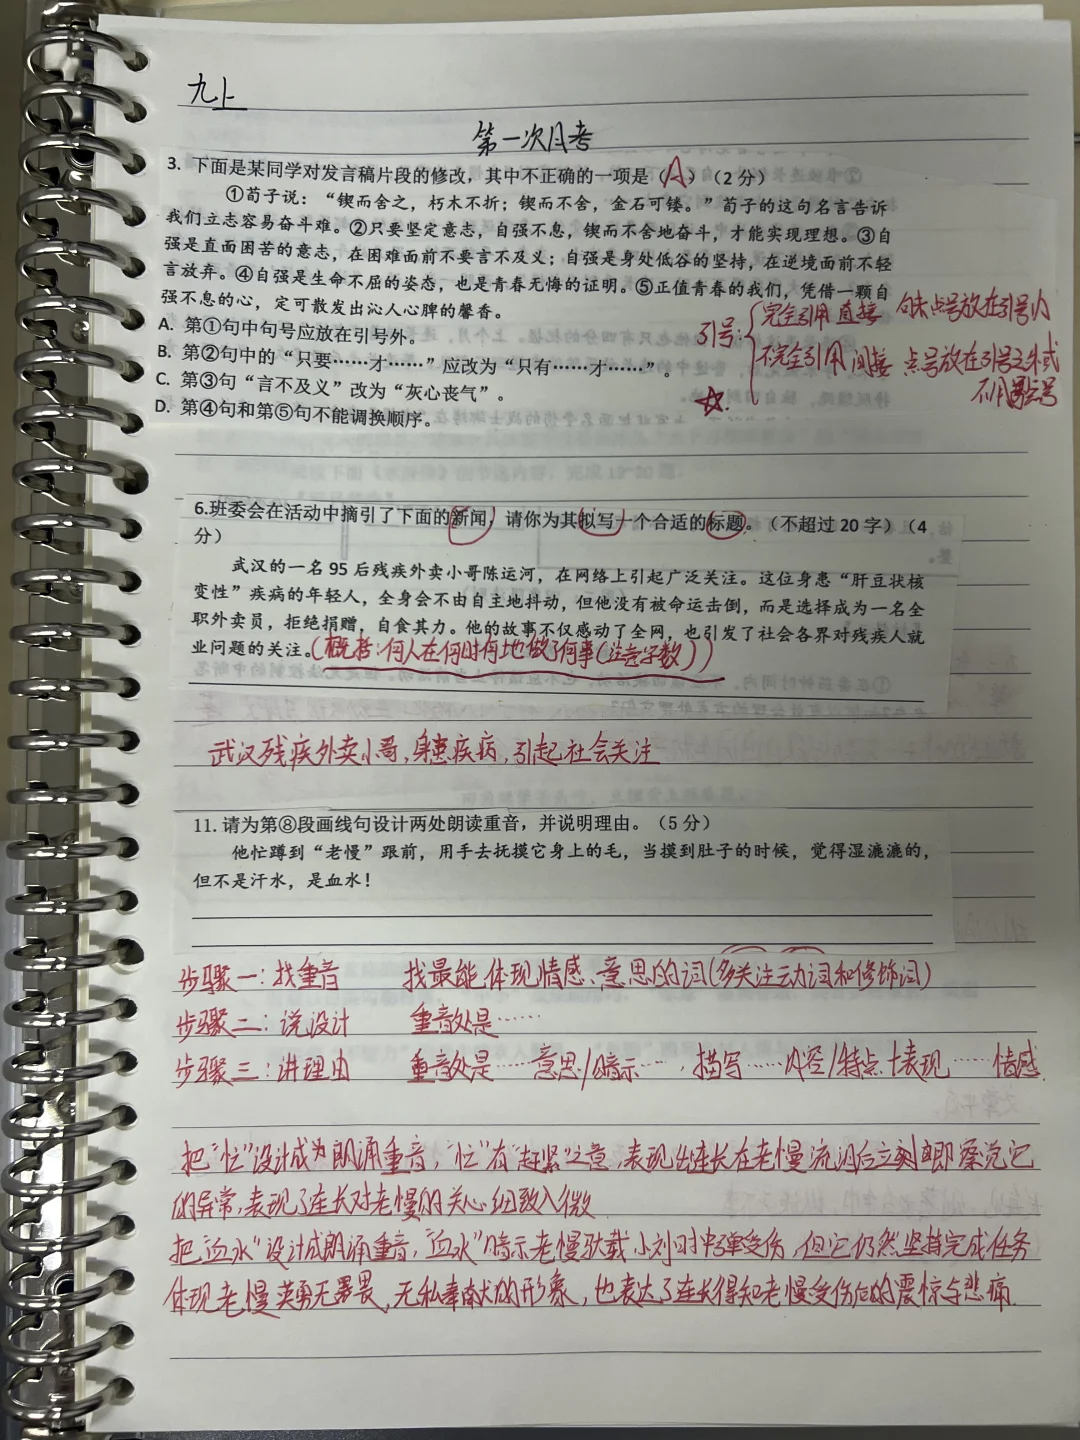 九上
第一次月考
3. 下面是某同学对发言稿片段的修改，其中不正确的一项是（A）（2 分）
①荀子说：“锲而舍之，朽木不折；锲而不舍，金石可镂。”荀子的这句名言告诉
我们立志容易奋斗难。②只要坚定意志，自强不息，锲而不舍地奋斗，才能实现理想。③自
强是直面困苦的意志，在困难面前不要言不及义；自强是身处低谷的坚持，在逆境面前不轻
言放弃。④自强是生命不屈的姿态，也是青春无悔的证明。⑤正值青春的我们，凭借一颗自
强不息的心，定可散发出沁人心脾的馨香。
A. 第①句中句号应放在引号外。
B. 第②句中的“只要……才……”应改为“只有……才……”。
C. 第③句“言不及义”改为“灰心丧气”。
D. 第④句和第⑤句不能调换顺序。
引号：
完全引用 直接 句末点号放在引号内
不完全引用 间接 点号放在引号之外或
不用冒号
6.班委会在活动中摘引了下面的新闻，请你为其拟写一个合适的标题。（不超过 20 字）（4
分）
武汉的一名 95 后残疾外卖小哥陈运河，在网络上引起广泛关注。这位身患“肝豆状核
变性”疾病的年轻人，全身会不由自主地抖动，但他没有被命运击倒，而是选择成为一名全
职外卖员，拒绝捐赠，自食其力。他的故事不仅感动了全网，也引发了社会各界对残疾人就
业问题的关注。（概括：何人在何时何地做了何事（注意字数））
武汉残疾外卖小哥，身患疾病，引起社会关注
11. 请为第⑧段画线句设计两处朗读重音，并说明理由。（5 分）
他忙蹲到“老慢”跟前，用手去抚摸它身上的毛，当摸到肚子的时候，觉得湿漉漉的，
但不是汗水，是血水！
步骤一：找重音 找最能体现情感、意思的词（多关注动词和修饰词）
步骤二：说设计 重音处是……
步骤三：讲理由 重音处是……意思/暗示…，描写……内容/特点+表现……情感
把“忙”设计成为朗诵重音，“忙”有“赶紧”之意，表现出连长在老慢流泪后立刻即察觉它
的异常，表现了连长对老慢的关心细致入微
把“血水”设计成朗诵重音，“血水”暗示老慢驮载小刘时中弹受伤，但它仍然坚持完成任务
体现老慢英勇无畏，无私奉献的形象，也表达了连长得知老慢受伤后的震惊与悲痛